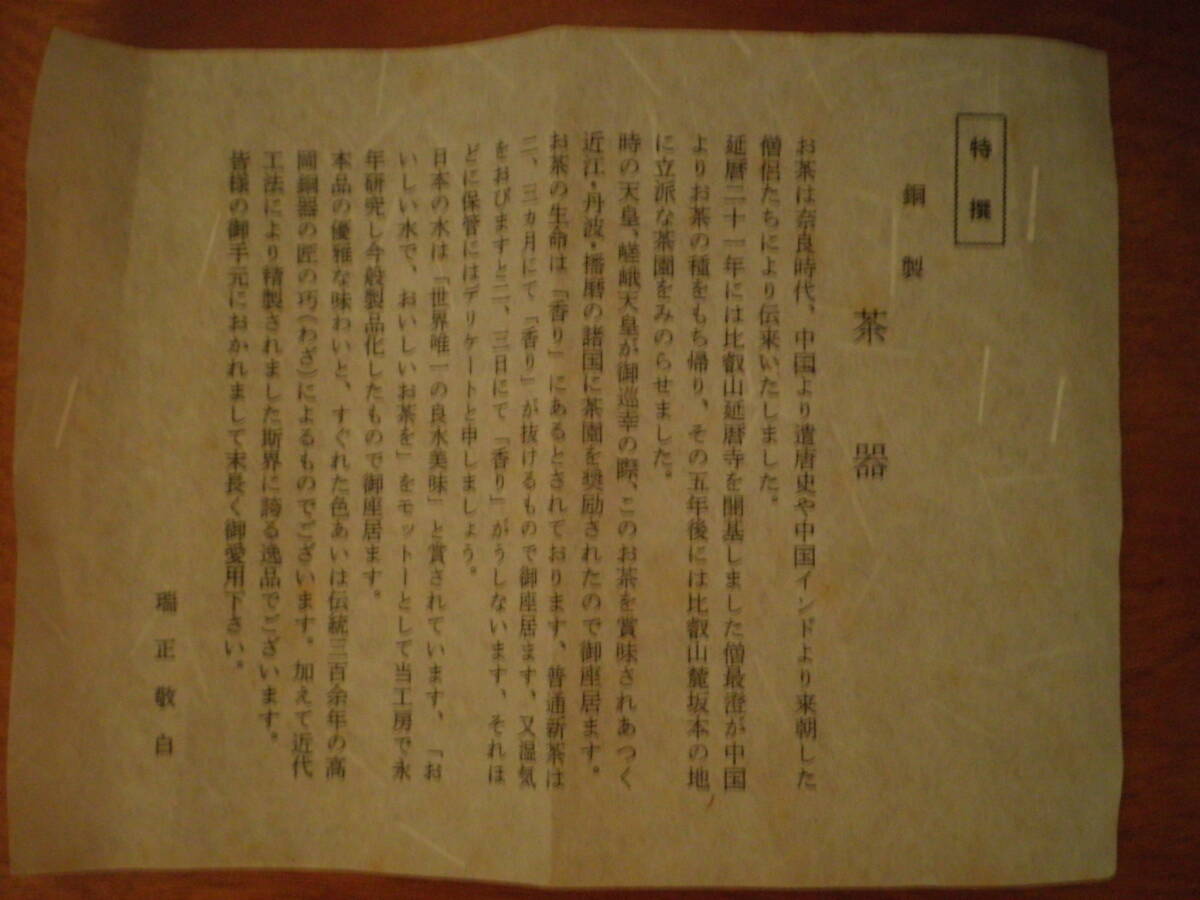 特撰
銅製
茶器
お茶は奈良時代、中国より遣唐史や中国インドより来朝した
僧侶たちにより伝来いたしました。
延暦二十一年には比叡山延暦寺を開基しました僧最澄が中国
よりお茶の種をもち帰り、その五年後には比叡山麓坂本の地
に立派な茶園をみのらせました。
時の天皇、嵯峨天皇が御巡幸の際、このお茶を賞味されあつく
近江・丹波・播磨の諸国に茶園を奨励されたので御座居ます。
お茶の生命は「香り」にあるとされております、普通新茶は
二、三カ月にて「香り」が抜けるもので御座居ます、又湿気
をおびますと二、三日にて「香り」がうしないます、それほ
どに保管にはデリケートと申しましょう。
日本の水は「世界唯一の良水美味」と賞されています、「お
いしい水で、おいしいお茶を」をモットーとして当工房で永
年研究し今般製品化したもので御座居ます。
本品の優雅な味わいと、すぐれた色あいは伝統三百余年の高
岡銅器の匠の巧(わざ)によるものでございます。加えて近代
工法により精製されました斯界に誇る逸品でございます。
皆様の御手元におかれまして末長く御愛用下さい。
瑞正敬白